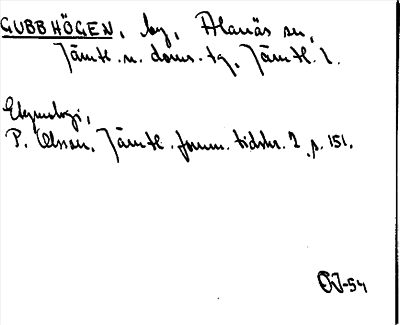 GUBBHÖGEN, by, Alanäs sn,
Jämtl. n. doms. tg, Jämtl. l.
Etymologi,
P. Olsson, Jämtl. fornm. tidskr. 2, p. 151.
-54